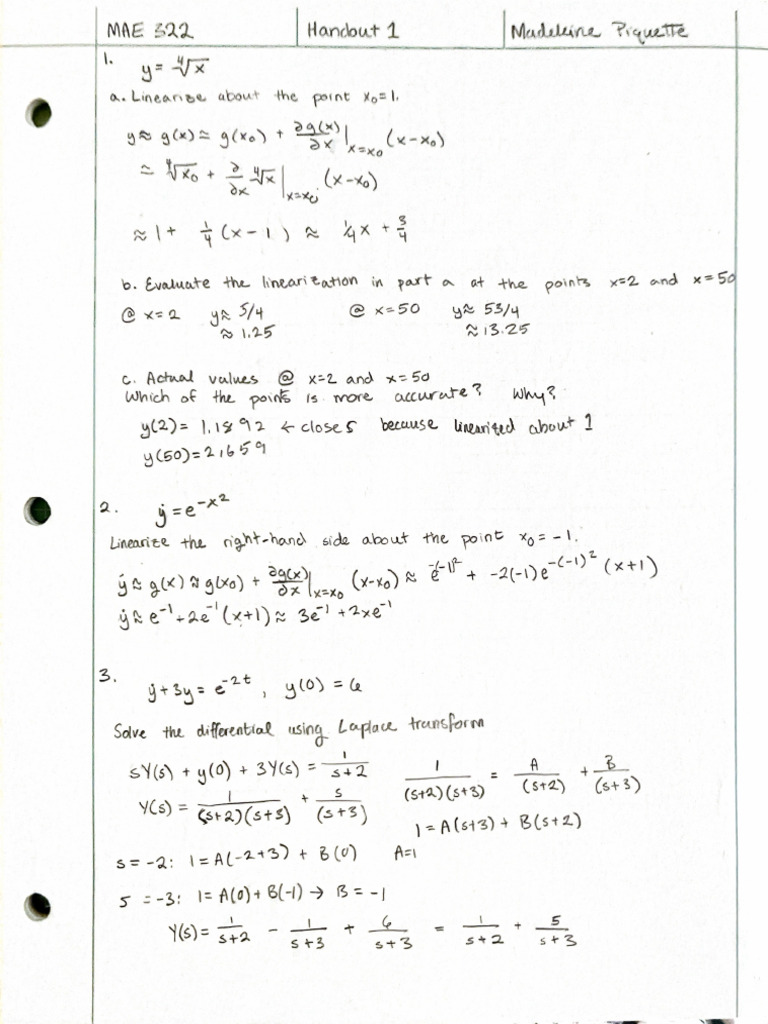 MAE 322 Handout 1 Madeleine Piquette
1. y = ∜x
a. Linearize about the point x₀=1.
y ≈ g(x) ≃ g(x₀) + ∂g(x)/∂x |ₓ₌ₓ₀ (x-x₀)
≃ ∜x₀ + ∂/∂x ∜x |ₓ₌ₓ₀ (x-x₀)
≈ 1 + 1/4 (x-1) ≈ 1/4x + 3/4
b. Evaluate the linearization in part a at the points x=2 and x=50
@ x=2 y≈ 5/4 @ x=50 y≈ 53/4
≈ 1.25 ≈ 13.25
c. Actual values @ x=2 and x=50
Which of the points is more accurate? Why?
y(2) = 1.1892 ← closer because linearized about 1
y(50) = 2.1659
2. ẏ = e^-x2
Linearize the right-hand side about the point x₀ = -1.
ẏ ≈ g(x) ≈ g(x₀) + ∂g(x)/∂x |ₓ₌ₓ₀ (x-x₀) ≈ e^-(-1)² + -2(-1)e^-(-1)² (x+1)
ẏ ≈ e⁻¹ + 2e⁻¹ (x+1) ≈ 3e⁻¹ + 2xe⁻¹
3. ẏ + 3y = e^-2t, y(0) = 6
Solve the differential using Laplace transform
sY(s) + y(0) + 3Y(s) = 1/(s+2) 1/((s+2)(s+3)) = A/(s+2) + B/(s+3)
Y(s) = 1/((s+2)(s+3)) + s/(s+3) 1 = A(s+3) + B(s+2)
s = -2: 1 = A(-2+3) + B(0) A=1
s = -3: 1 = A(0) + B(-1) → B = -1
Y(s) = 1/(s+2) - 1/(s+3) + 6/(s+3) = 1/(s+2) + 5/(s+3)